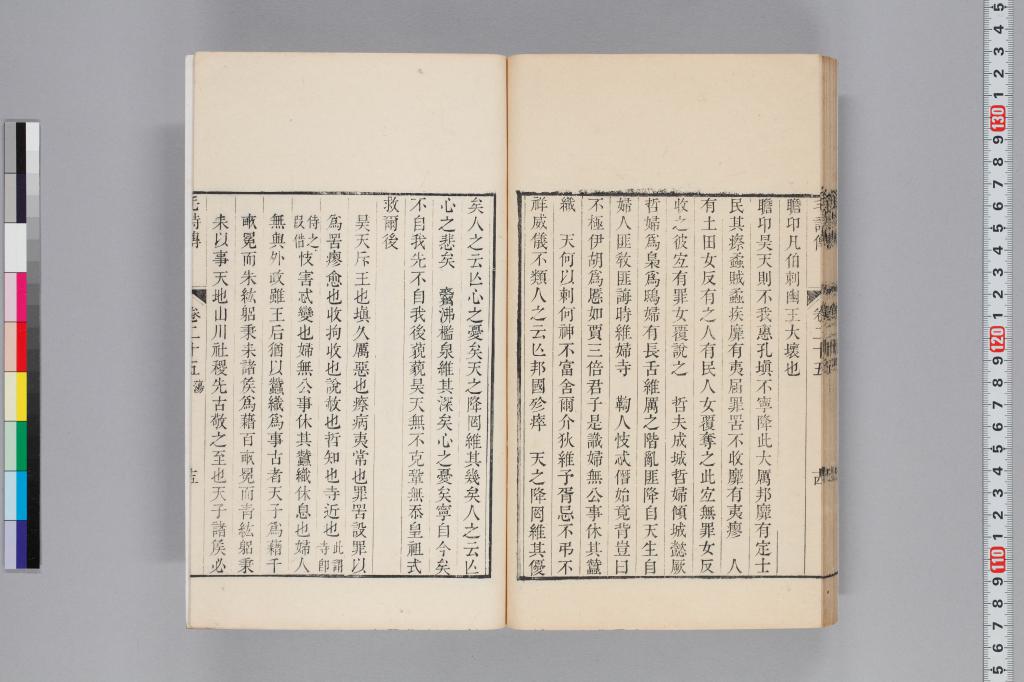 瞻卬凡伯刺幽王大壞也
瞻卬昊天則不我惠孔塡不寧降此大厲邦靡有定士
民其瘵蟊賊蟊疾靡有夷屆罪罟不收靡有夷瘳　人
有土田女反有之人有民人女覆奪之此宐無罪女反
收之彼宐有罪女覆說之　哲夫成城哲婦傾城懿厥
哲婦爲梟爲鴟婦有長舌維厲之階亂匪降自天生自
婦人匪敎匪誨時維婦寺　鞫人忮忒僭始竟背豈曰
不極伊胡爲慝如賈三倍君子是識婦無公事休其蠶
織　天何以刺何神不富舍爾介狄維予胥忌不弔不
祥威儀不類人之云亾邦國殄瘁　天之降罔維其優
矣人之云亾心之憂矣天之降罔維其幾矣人之云亾
心之悲矣　觱沸檻泉維其深矣心之憂矣寧自今矣
不自我先不自我後藐藐昊天無不克鞏無忝皇祖式
救爾後
昊天斥王也塡久厲惡也瘵病夷常也罪罟設罪以
爲罟瘳愈也收拘收也說赦也哲知也寺近也此謂寺卽
侍之叚借忮害忒變也婦無公事休其蠶織休息也婦人
無與外政雖王后猶以蠶織爲事古者天子爲藉千
畝冕而朱紘躬秉耒諸矦爲藉百畝冕而靑紘躬秉
耒以事天地山川社稷先古敬之至也天子諸矦必
毛詩傳
卷二十五
蕩
十五